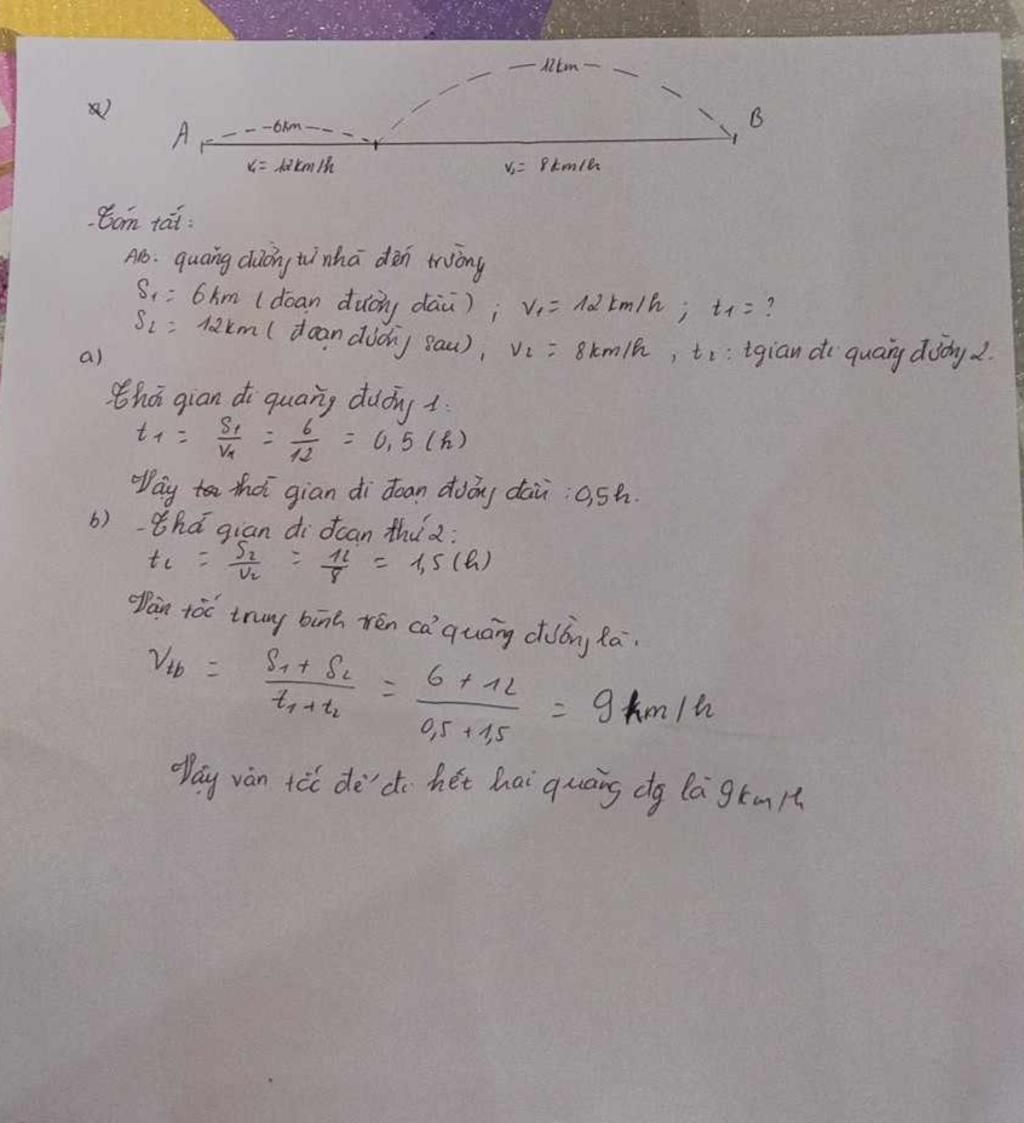 12km
A
6km
B
v₁= 12km/h
v₂= 8km/h
- Tóm tắt:
AB: quãng đường từ nhà đến trường
S₁= 6km (đoạn đường đầu); v₁= 12km/h; t₁=?
S₂= 12km (đoạn đường sau), v₂ = 8km/h, t₂: tgian đi quãng đường 2.
a)
Thời gian đi quãng đường 1:
t₁ = S₁/v₁ = 6/12 = 0,5 (h)
Vậy thời gian đi đoạn đường đầu: 0,5h.
b) - Thời gian đi đoạn thứ 2:
t₂ = S₂/v₂ = 12/8 = 1,5 (h)
Vận tốc trung bình trên cả quãng đường là.
Vtb = S₁ + S₂ / t₁ + t₂ = 6 + 12 / 0,5 + 1,5 = 9 km/h
Vậy vận tốc để đi hết hai quãng đg là 9km/h